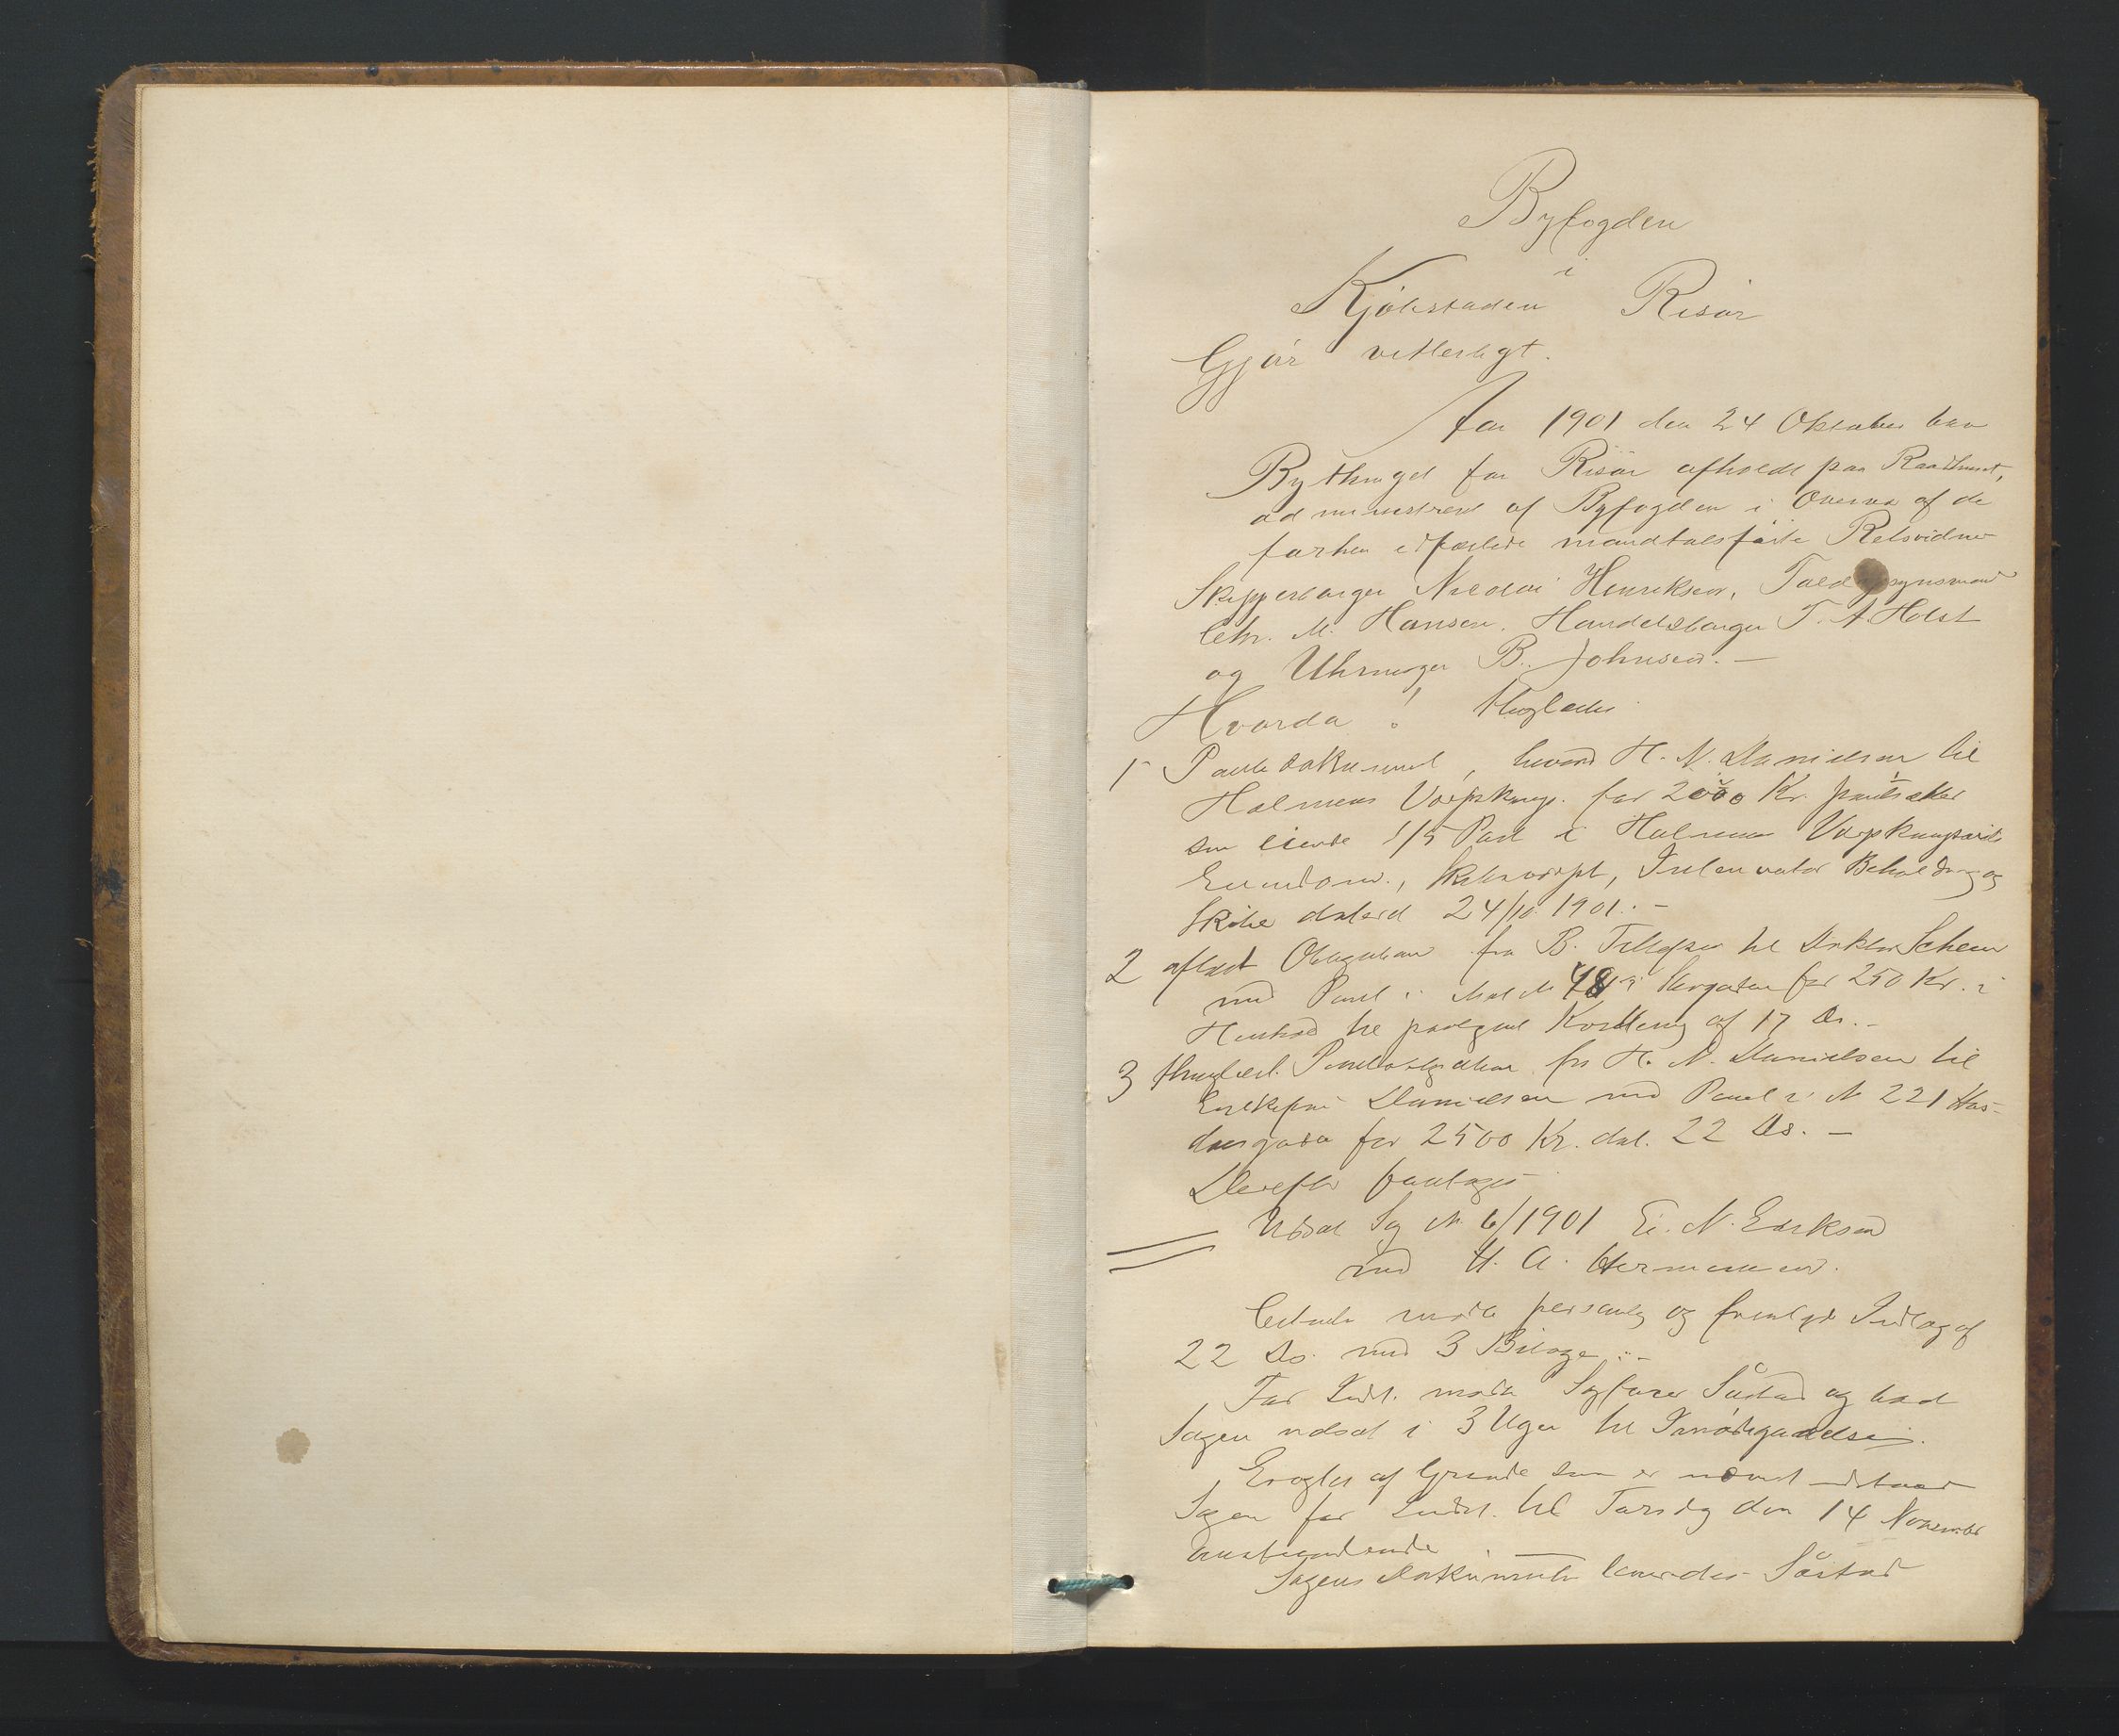 Byfogden
i
Kjøbstaden Risør
Gjør vitterligt.
Aar 1901 den 24 Oktober blev
Bythinget for Risør afholdt paa Raadhuset,
administreret af Byfogden i Overvær af de
forhen edfæstede mandtalsførte Retsvidner
Skipperborger Nicolai Henriksen, Told opsynsmand
Chr. M. Hansen. Handelsborger T. A. Holst
og Uhrmager B. Johnsen. —
Hvorda! thinglæstes
1 Pantedokument, hvorved H. N. Danielsen til
Holmens for 2000 Kr. pantsætter
sin eiende 1/5 Part i Holmens
Eiendom., Inventar Beholdning og
Skibe dateret 24/10 1901. —
2 aflæst Obligation fra B. Tellefsen til Doktor Scheen
med Pant i Mat. № 48 i for 250 Kr. i
Henhold til paategnet Kvittering af 17 Ds. —
3 thinglæst Pantobligation fra H. N. Danielsen til
Danielsen med Pant i № 221
for 2500 Kr. dat. 22 Ds. —
Derefter foretoges
Udsat Sag № 6/1901 Ei. N. Eriksen
mod H. A. Hermansen.
Citanten mødte personlig og fremlagde Indlæg af
22 Ds. med 3 Bilage. —
For Indst. mødte Sagfører Såstad og bad
Sagen udsat i 3 Uger til Imødegaaelse.
af Grunde som er nævnt udstaar
Sagen for Indst. til Torsdag den 14 November
anstundende. —
Sagens Dokumenter laantes Såstad